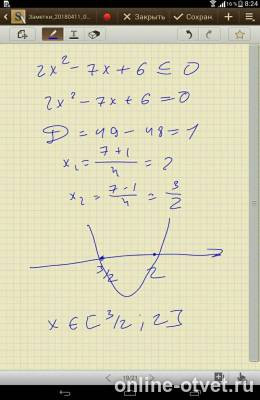 16 % 8:24
Заметки_20180411_0...
Закрыть
Сохран.
2x² - 7x + 6 ≤ 0
2x² - 7x + 6 = 0
D = 49 - 48 = 1
x₁ = (7+1)/4 = 2
x₂ = (7-1)/4 = 3/2
3/2 2
x ∈ [3/2 ; 2]
19/21
online-otvet.ru